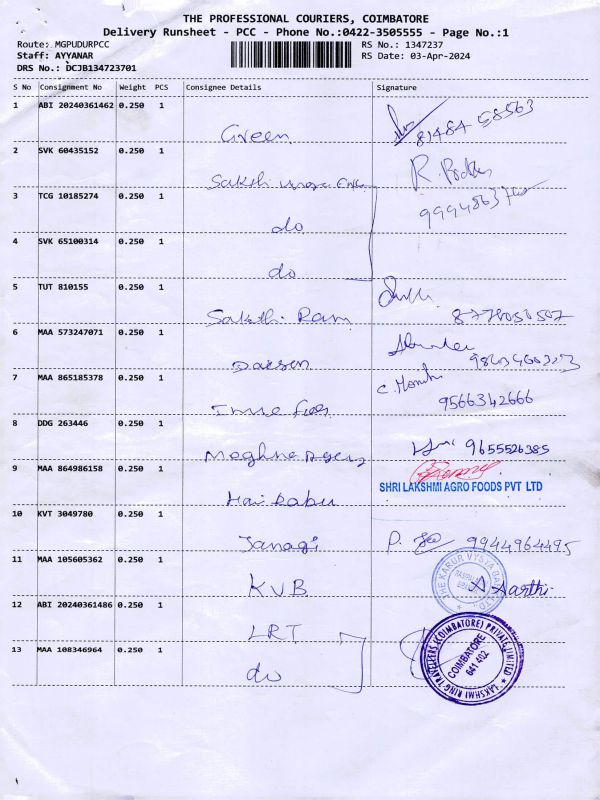 THE PROFESSIONAL COURIERS, COIMBATORE
Delivery Runsheet - PCC - Phone No.:0422-3505555 - Page No.:1
Route: MGPUDURPCC RS No.: 1347237
Staff: AYYANAR RS Date: 03-Apr-2024
DRS No.: DCJB134723701
S No Consignment No Weight PCS Consignee Details Signature
1 ABI 20240361462 0.250 1
Green
2 SVK 60435152 0.250 1
Sakthi
3 TCG 10185274 0.250 1
do
4 SVK 65100314 0.250 1
do
5 TUT 810155 0.250 1
Sakthi Ram
6 MAA 573247071 0.250 1
7 MAA 865185378 0.250 1
9566342666
8 DDG 263446 0.250 1
9655526385
9 MAA 864986158 0.250 1
SHRI LAKSHMI AGRO FOODS PVT LTD
Hari Babu
10 KVT 3049780 0.250 1
9944964495
11 MAA 105605362 0.250 1
KVB A Aarthi
12 ABI 20240361486 0.250 1
LRT
13 MAA 108346964 0.250 1
do
LAKSHMI RING TRAVELLERS (COIMBATORE) PRIVATE LIMITED
COIMBATORE
641 402